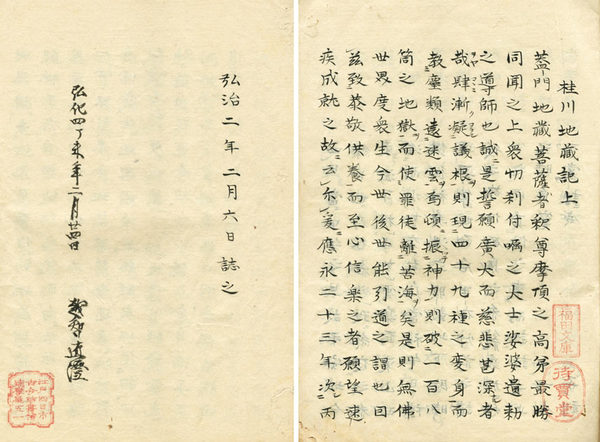 桂川地藏記上
蓋門地藏菩薩者釈尊摩頂之高弟最勝
同聞之上衆切利付嘱之大士娑婆遺勅
之導師也誠是誓願廣大而慈悲甚深者
哉肆漸凝議根則現四十九種之變身而
教臺類遠迷雲焉頌振神力則破一百八
箇之地獄而使罪徒離苦海矣是則無佛
世界度衆生今世後世能引道之謂也回
玆致恭敬供養而至心信楽之者願望速
疾成就之故云尓爰應永二十三年次丙
福田文庫
待賈堂
弘治二年二月六日誌之
弘化四丁未年二月廿四日
越智直澄
江戸四日市
古今珍書儈
達摩屋五一